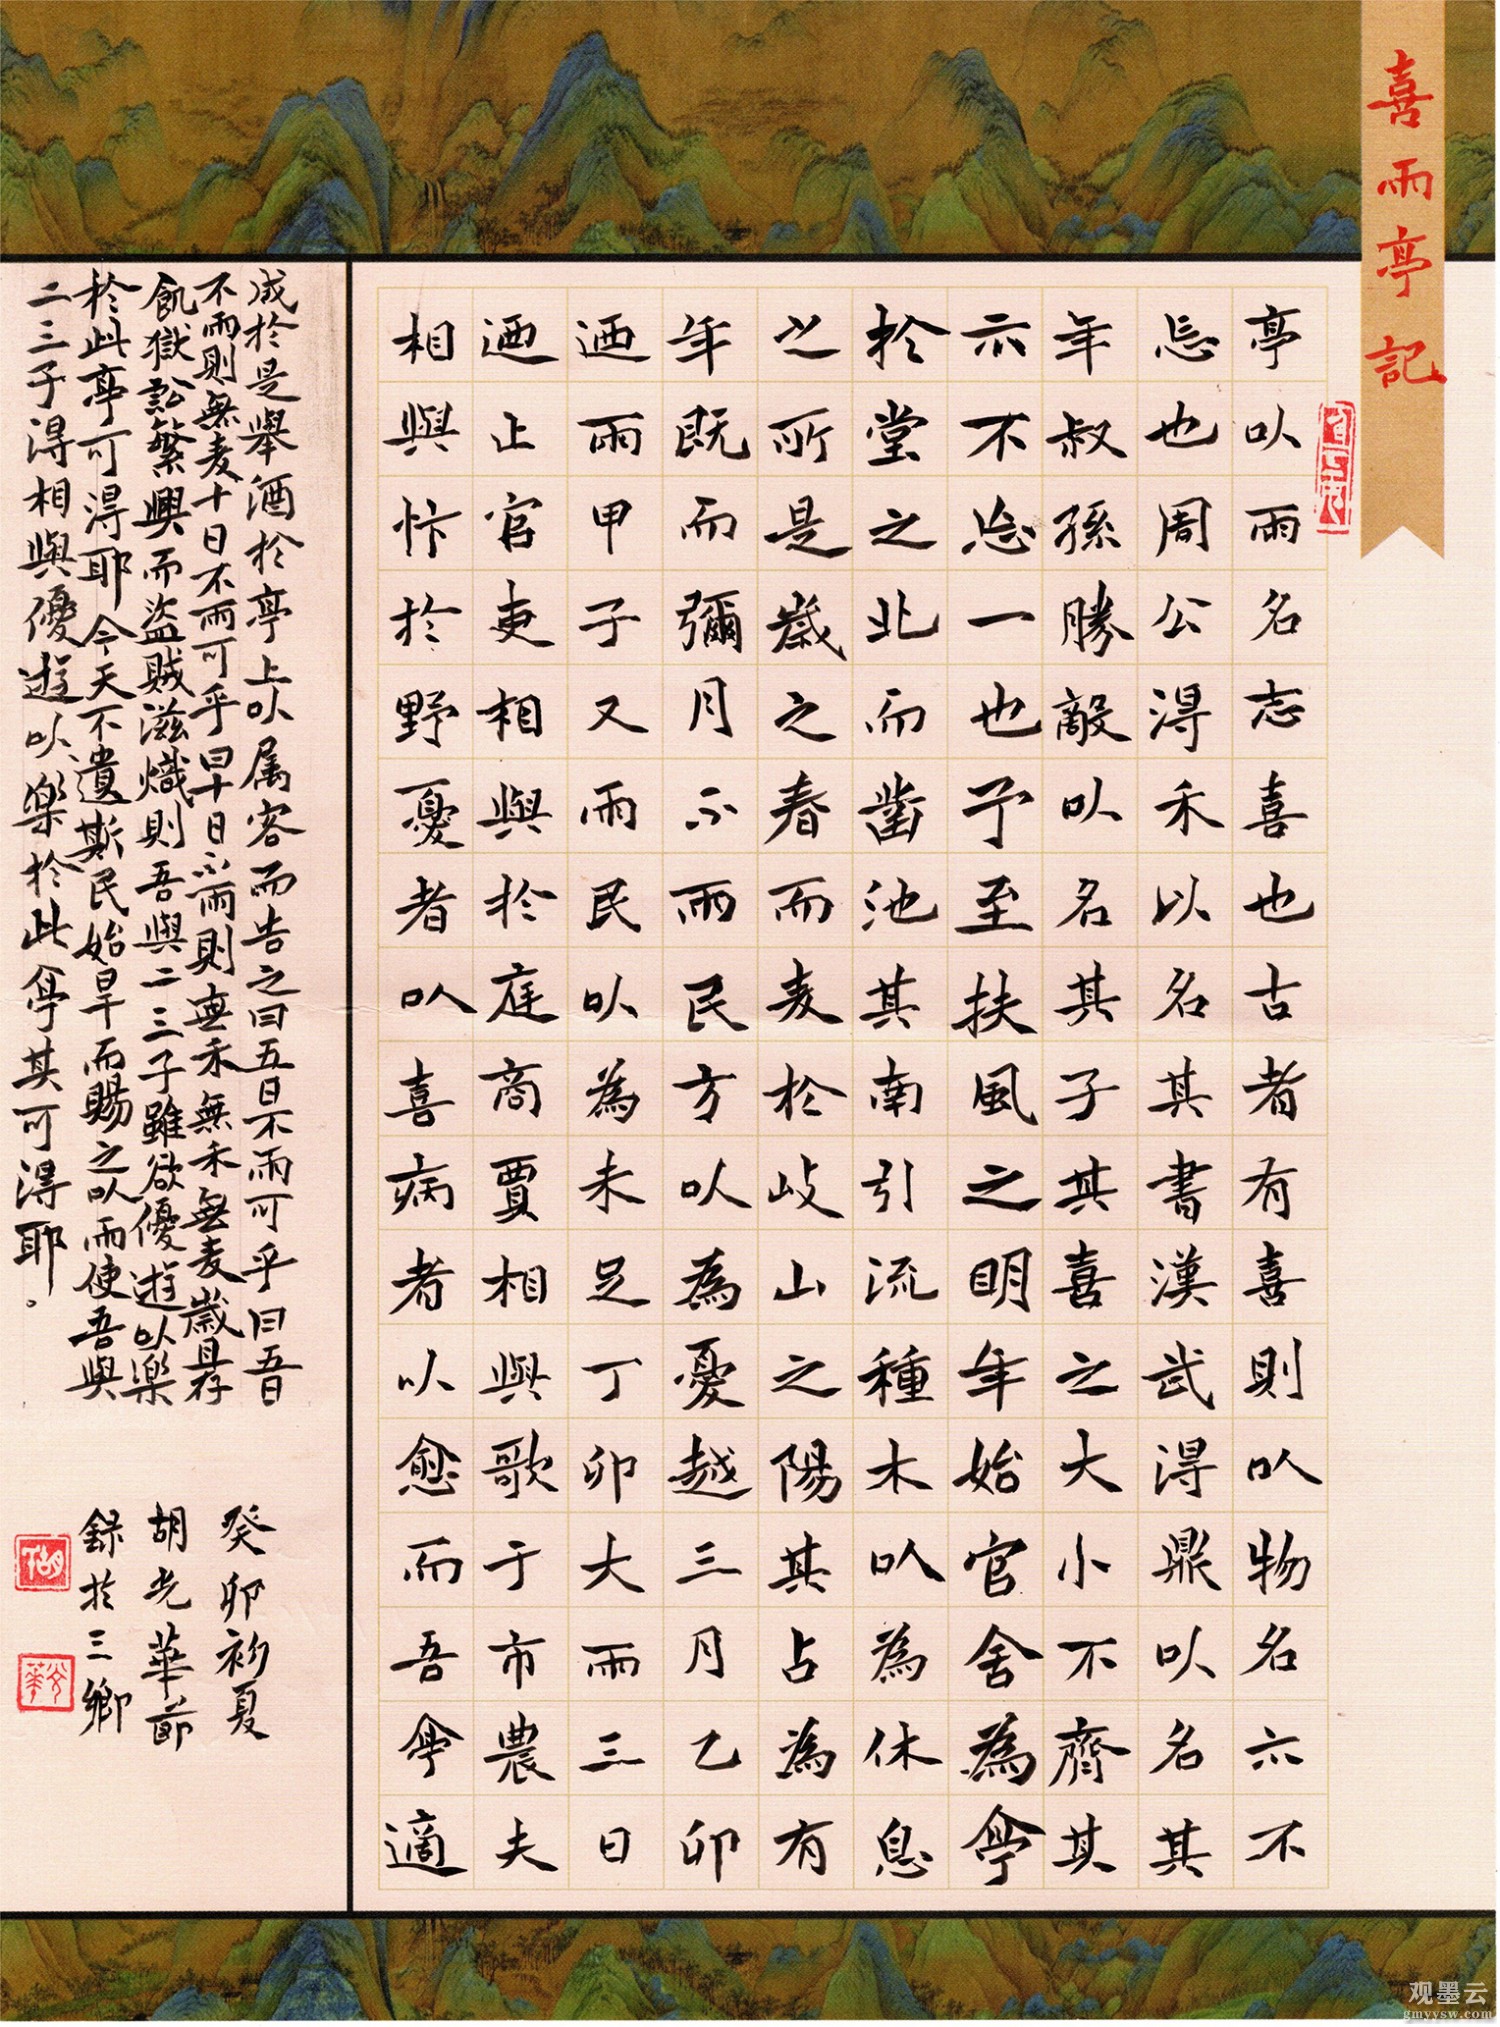 喜雨亭記
亭以雨名志喜也古者有喜則以物名示不
忘也周公得禾以名其書漢武得鼎以名其
年叔孫勝敵以名其子其喜之大小不齊其
示不忘一也予至扶風之明年始官舍為亭
於堂之北而鑿池其南引流種木以為休息
之所是歲之春而麦於岐山之陽其占為有
年既而彌月不雨民方以為憂越三月乙卯
迺雨甲子又雨民以為未足丁卯大雨三日
迺止官吏相與於庭商賈相與歌于市農夫
相與忭於野憂者以喜病者以愈而吾亭適
成於是舉酒於亭上以属客而告之曰五日不雨可乎曰吾日
不雨則無麦十日不雨可乎曰十日不雨則無禾無禾無麦歲且荐
飢獄訟繁興而盜賊滋熾則吾與二三子雖欲優遊以樂
於此亭可得耶今天不遺斯民始旱而賜之以雨使吾與
二三子得相與優遊以樂於此亭其可得耶。
癸卯初夏
胡光華節
錄於三鄉
胡
光華
观墨云
gmyysw.com